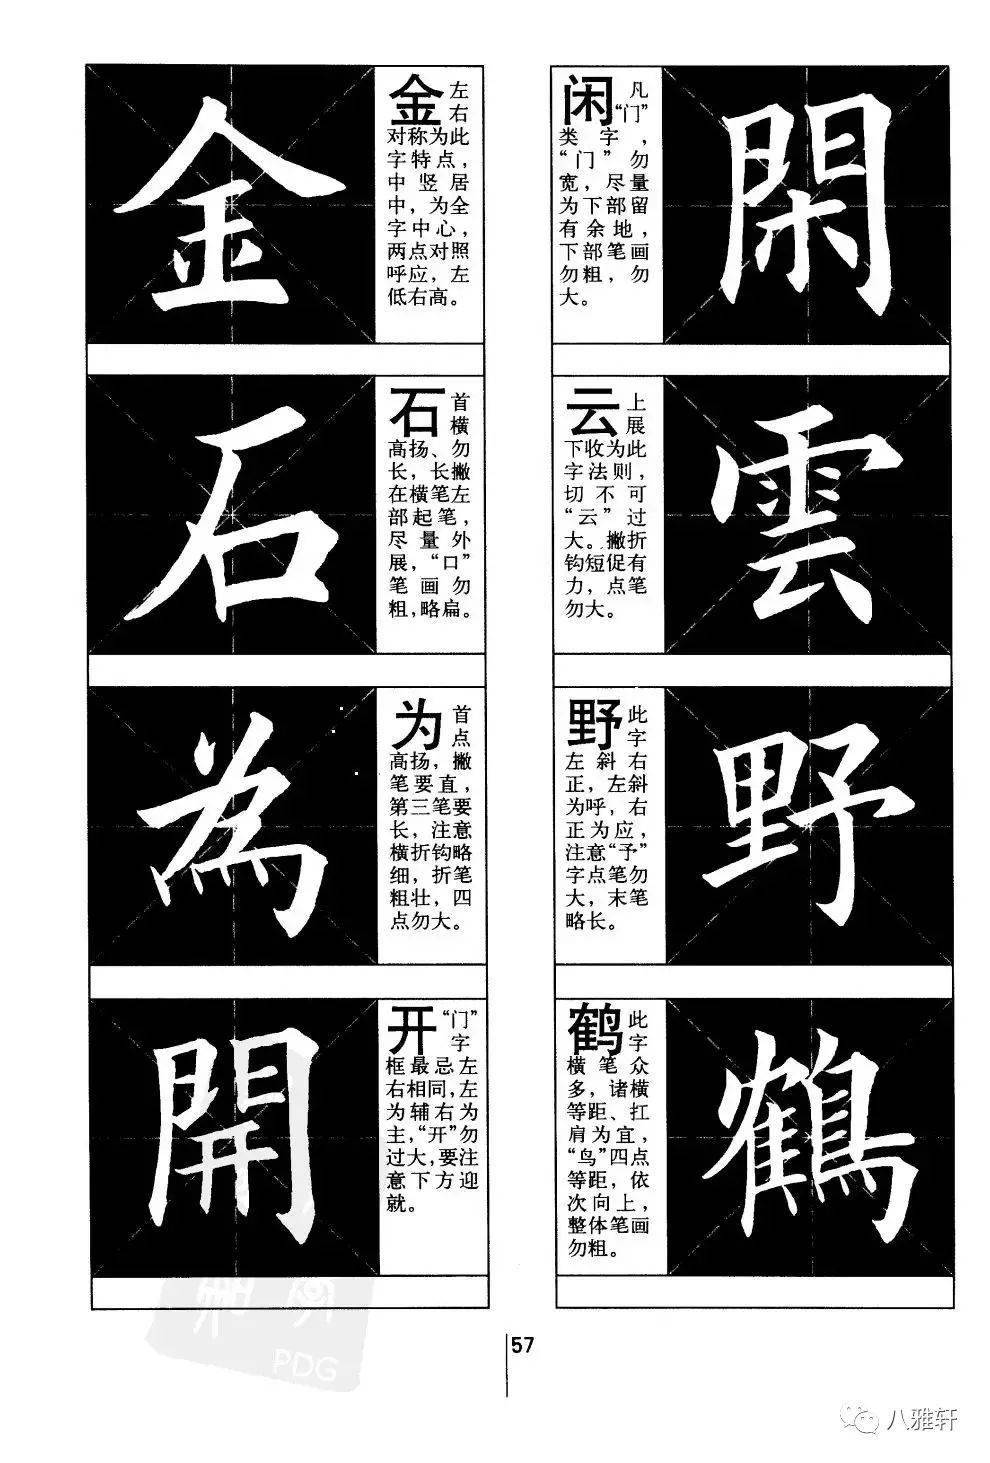 金
金 左
右
对称为此
字特点，
中竖居
中，为全
字中心，
两点对照
呼应，左
低右高。
石
石 首
横
高扬、勿
长，长撇
在横笔左
部起笔，
尽量外
展，“口”
笔画勿
粗，略扁。
為
为 首
点
高扬，撇
笔要直，
第三笔要
长，注意
横折钩略
细，折笔
粗壮，四
点勿大。
開
开 “门”
字
框最忌左
右相同，左
为辅右为
主，“开”勿
过大，要注
意下方迎
就。
闲 凡
“门”
类字，
“门”勿
宽，尽量
为下部留
有余地，
下部笔画
勿粗，勿
大。
閑
云 上
展
下收为此
字法则，
切不可
“云”过
大。撇折
钩短促有
力，点笔
勿大。
雲
野 此
字
左斜右
正，左斜
为呼，右
正为应，
注意“予”
字点笔勿
大，末笔
略长。
野
鹤 此
字
横笔众
多，诸横
等距、扛
肩为宜，
“鸟”四点
等距，依
次向上，
整体笔画
勿粗。
鶴
PDG
57
八雅轩